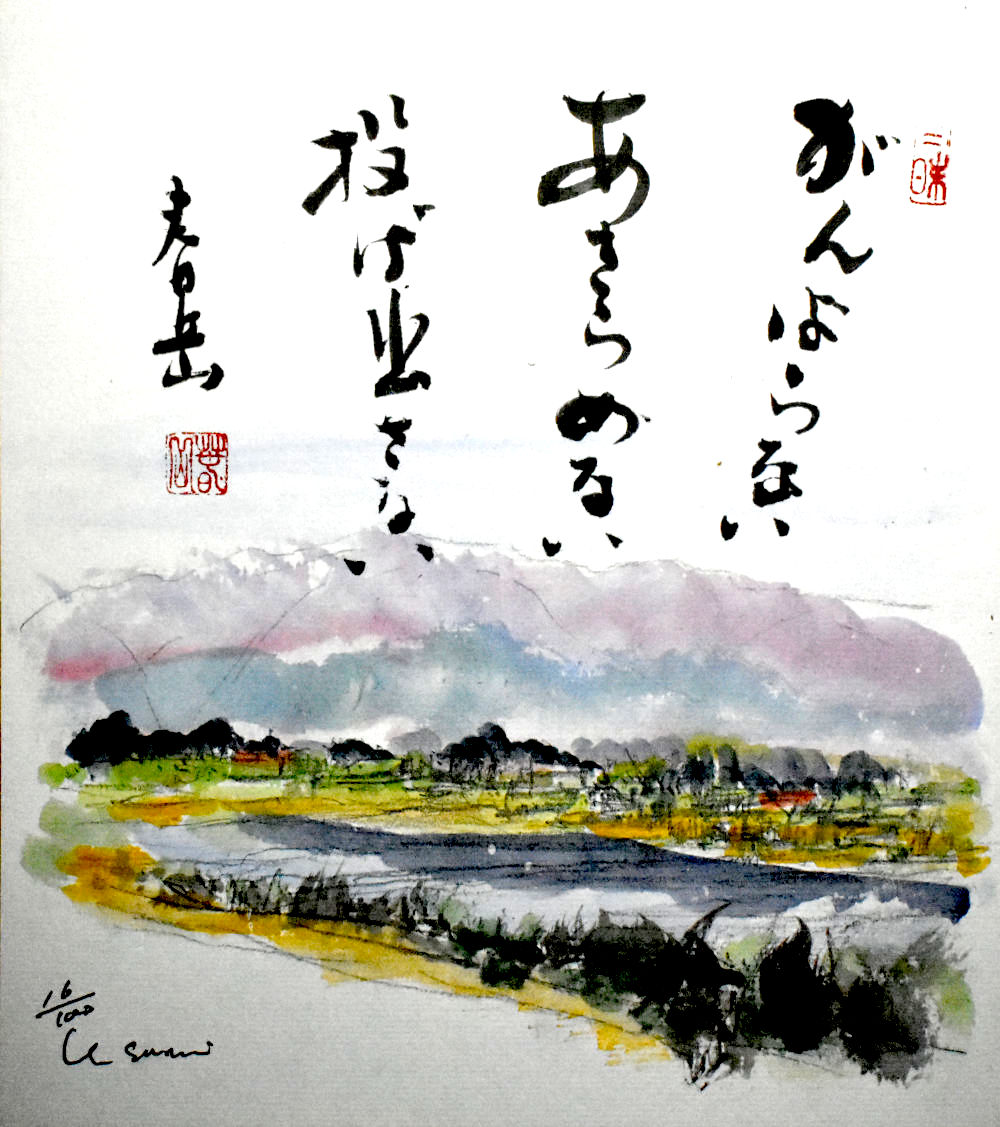 三昧
がんばらない
あきらめない
投げ出さない
春岳